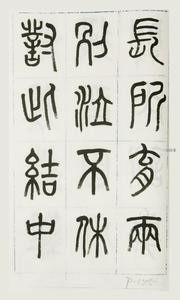 長所育兩
別泣不休
對此結中